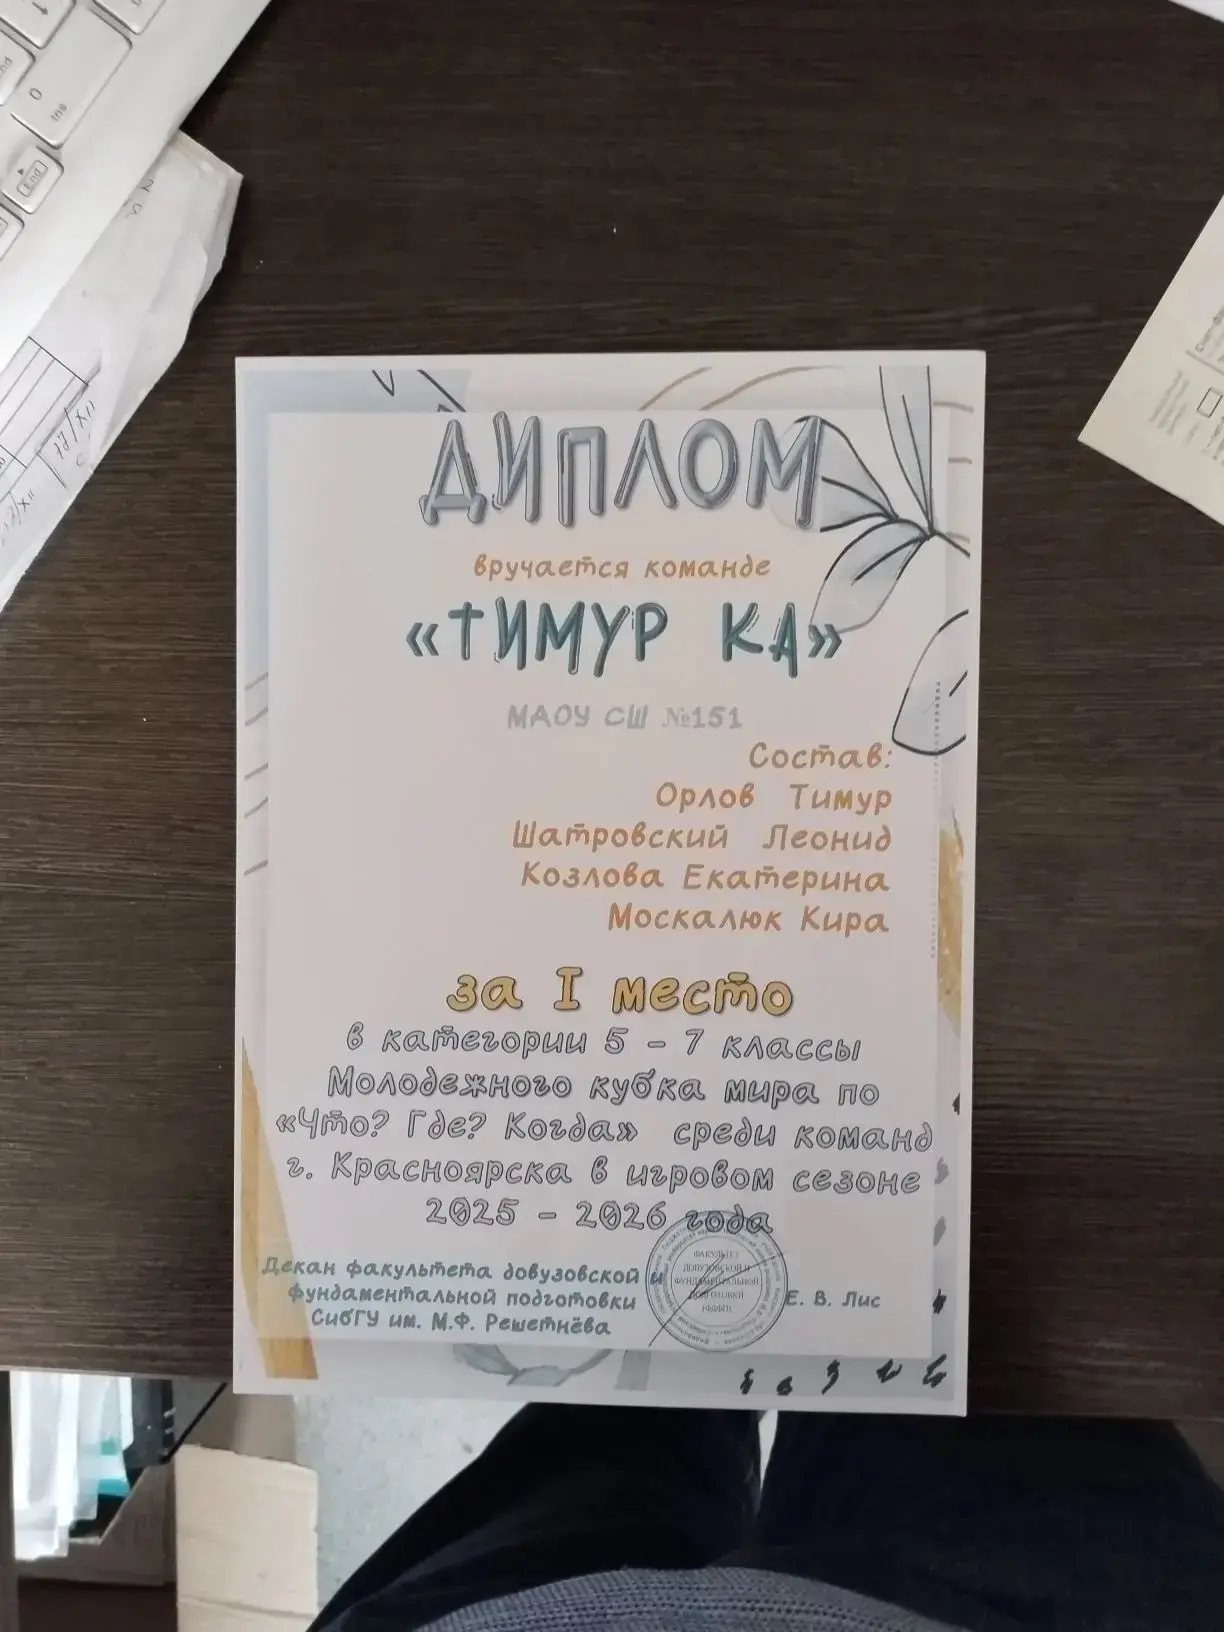 ДИПЛОМ
вручается команде
«ТИМУР КА»
МАОУ СШ №151
Состав:
Орлов Тимур
Шатровский Леонид
Козлова Екатерина
Москалюк Кира
за I место
в категории 5 – 7 классы
Молодежного кубка мира по
«Что? Где? Когда» среди команд
г. Красноярска в игровом сезоне
2025 – 2026 года
Декан факультета довузовской и
фундаментальной подготовки
СибГУ им. М.Ф. Решетнёва
Е. В. Лис
ФАКУЛЬТЕТ
ДОВУЗОВСКОЙ И
ФУНДАМЕНТАЛЬНОЙ
ПОДГОТОВКИ
End
0
Ins